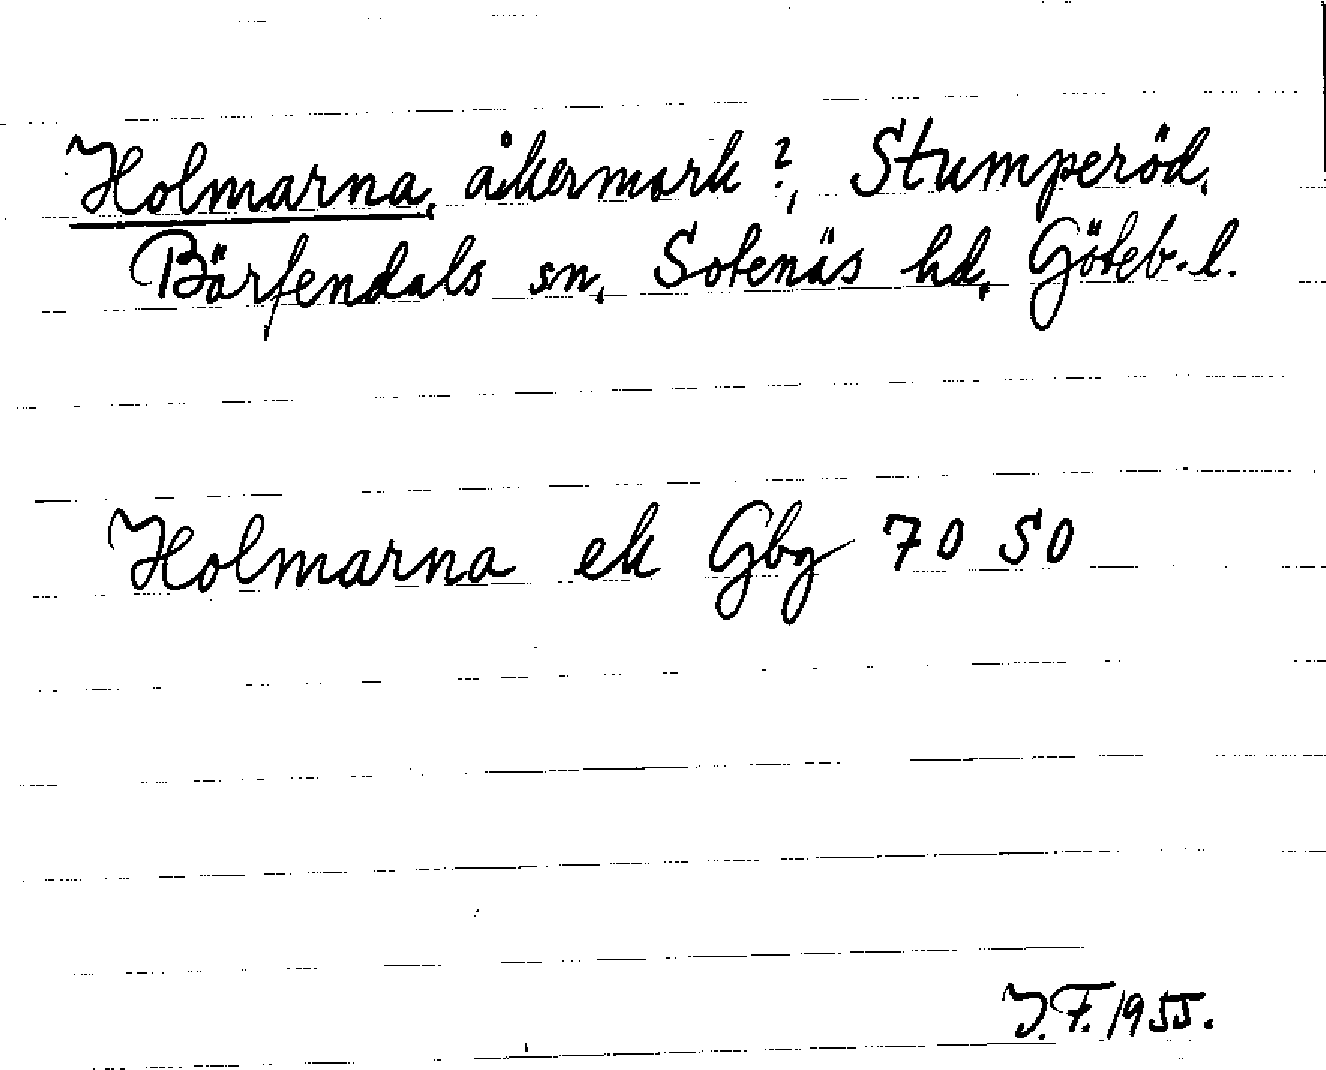 Holmarna, åkermark?, Stumperöd,
Bärfendals sn, Sotenäs hd, Göteb.l.
Holmarna ek Gbg 70 50
J.F. 1955.